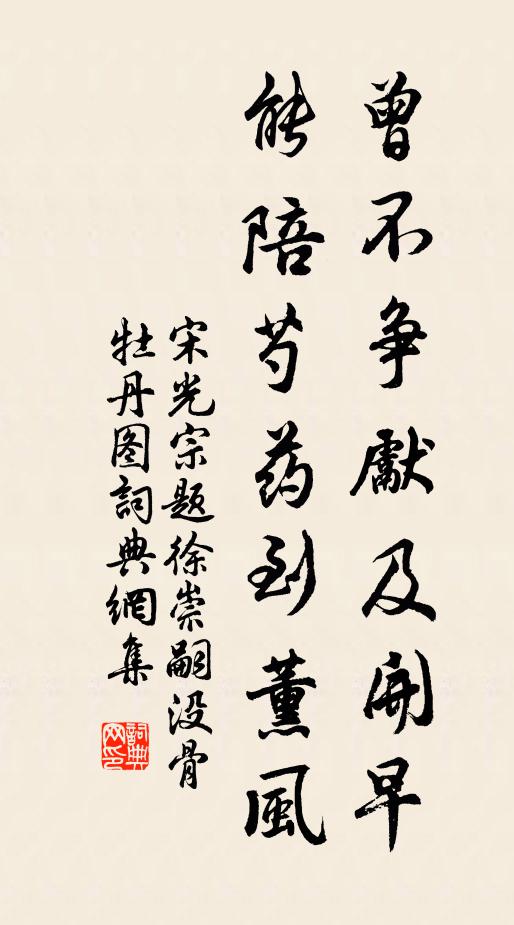 曾不争獻及開早
能陪芍药到薰風
宋光宗题徐崇嗣没骨
牡丹图詞典網集
詞典网印